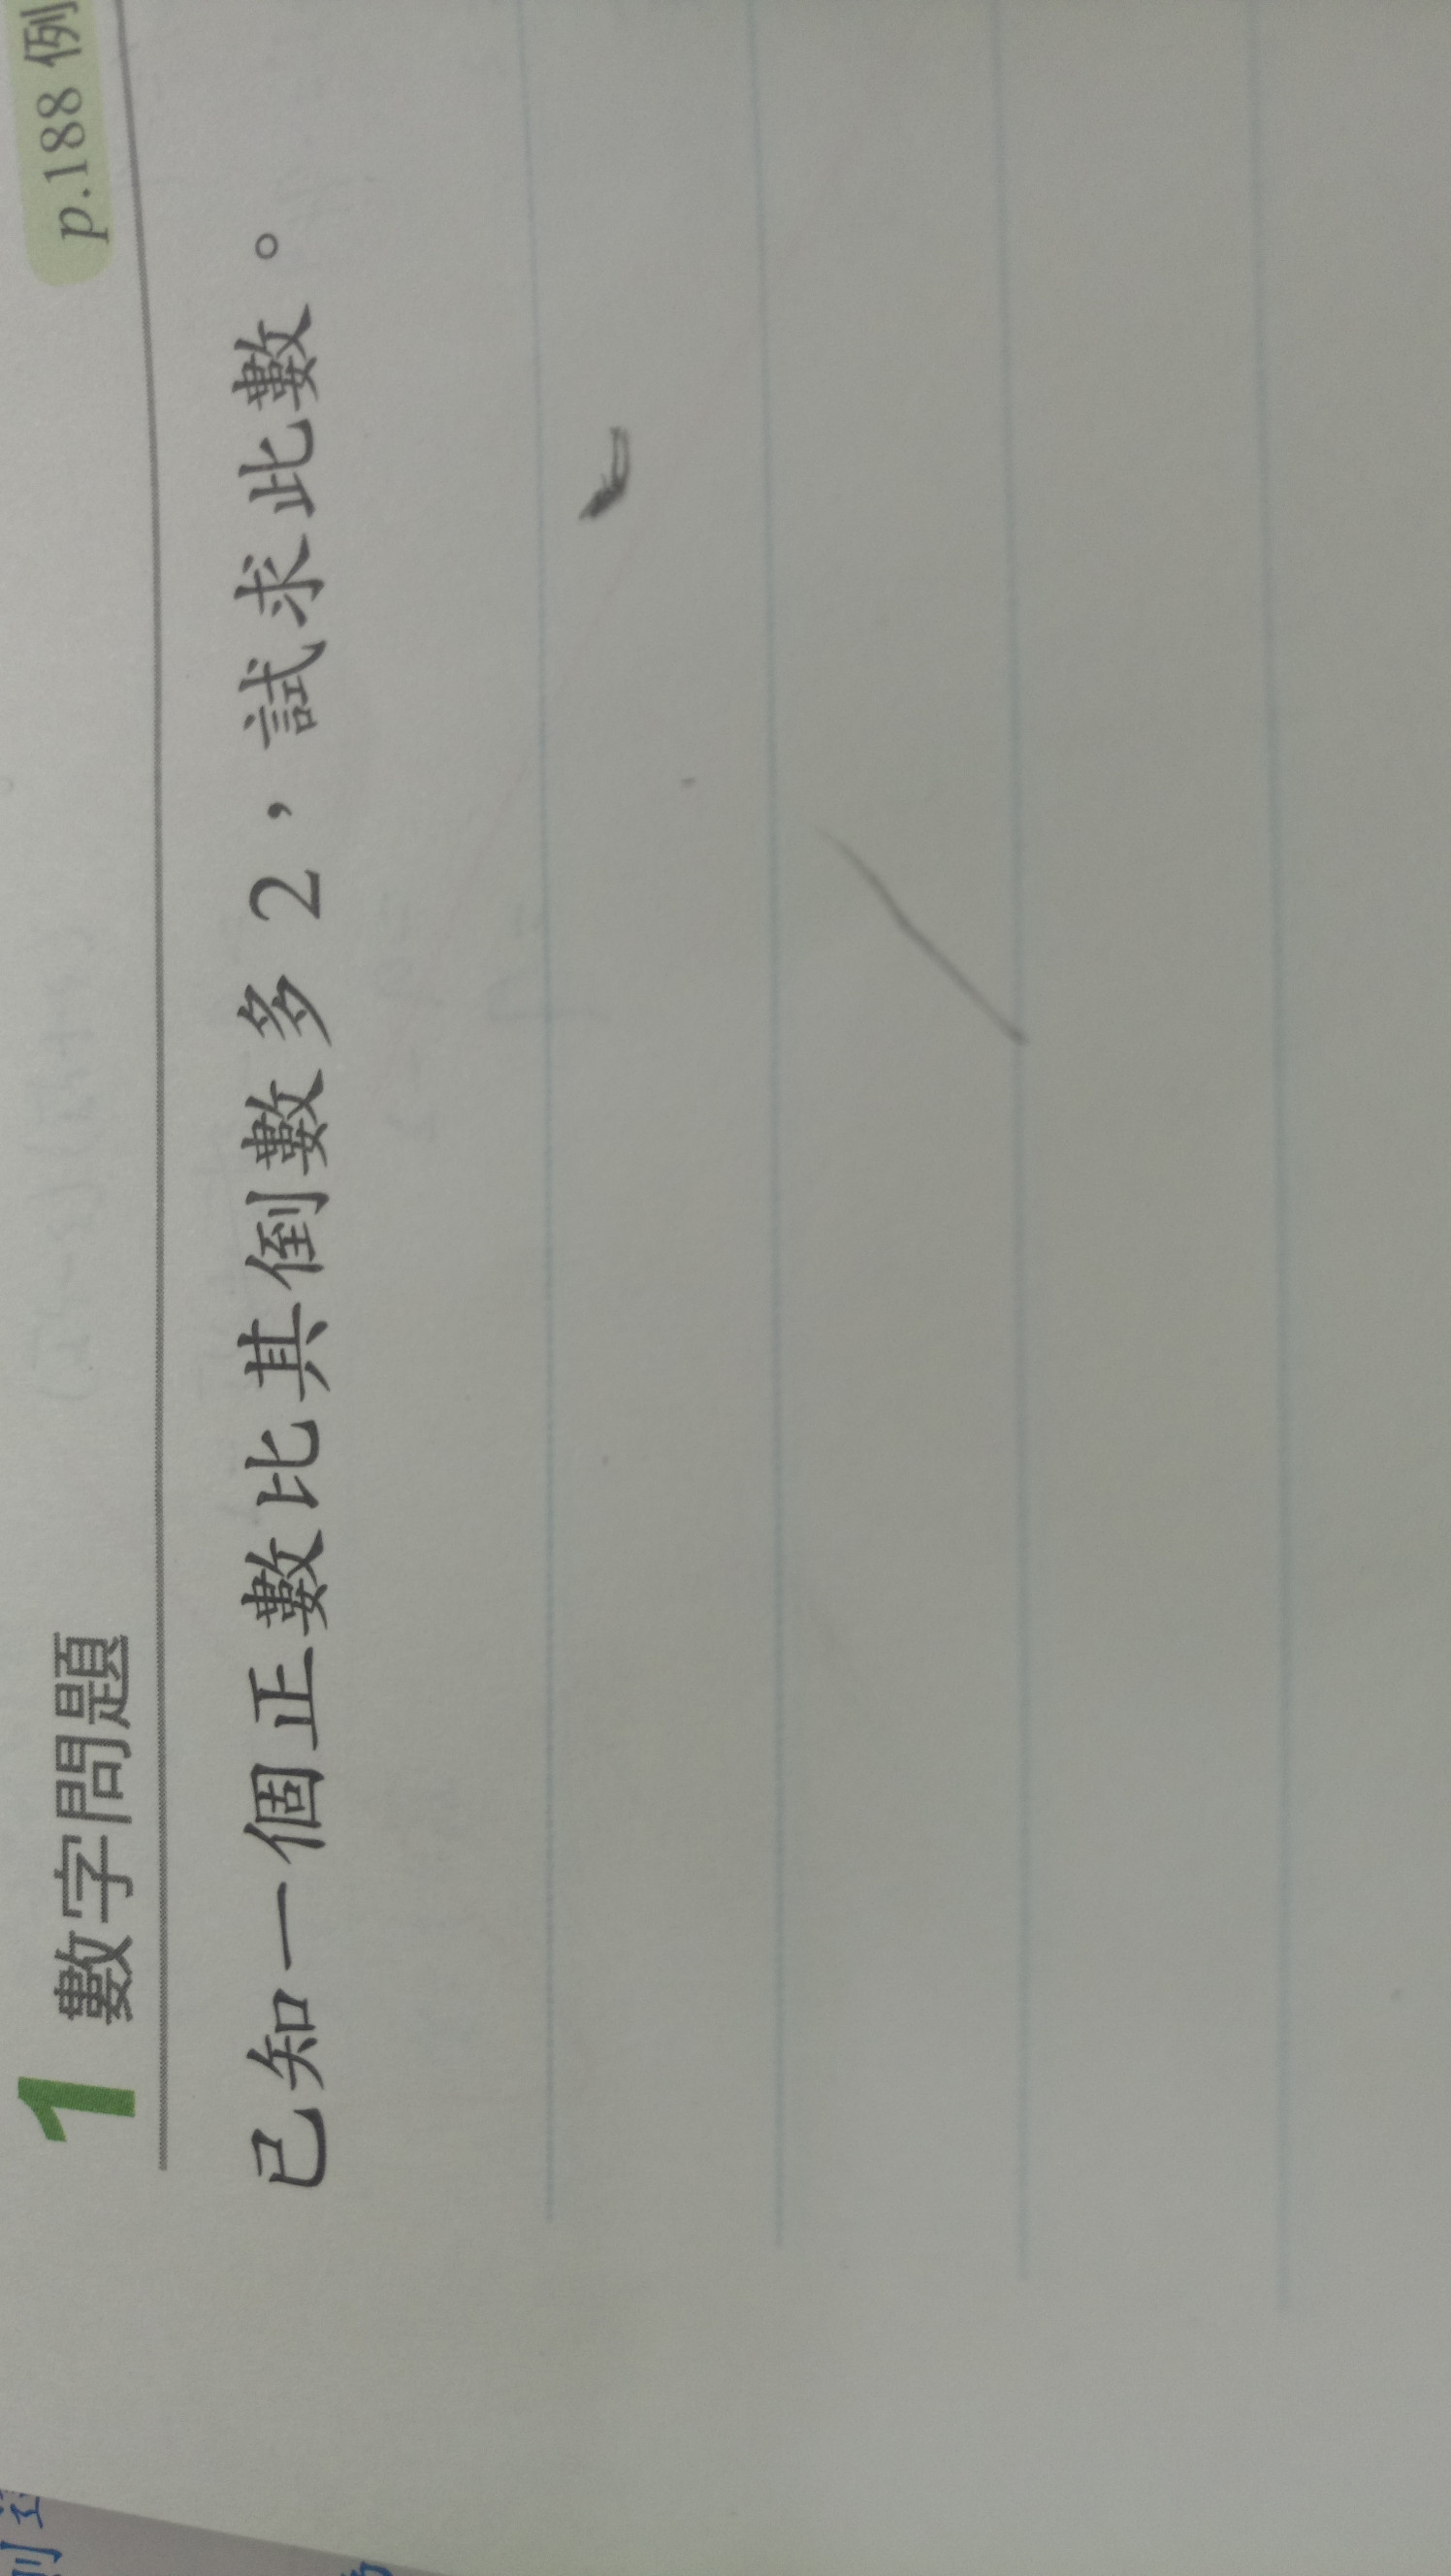 1 數字問題 p.188 例
已知一個正數比其倒數多 2，試求此數。